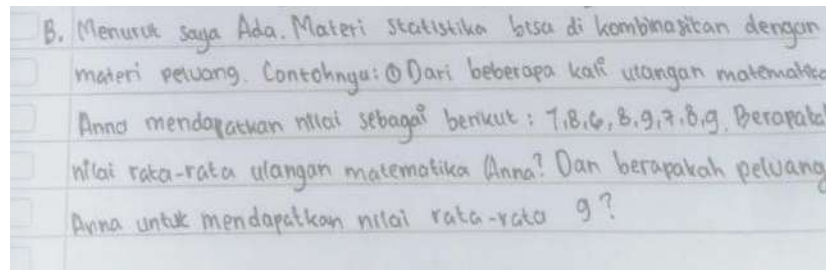 B. Menurut saya Ada. Materi statistika bisa di kombinasikan dengan
materi peluang. Contohnya: ① Dari beberapa kali ulangan matematika
Anna mendapatkan nilai sebagai berikut: 7,8,6,8,9,7,8,9. Berapakah
nilai rata-rata ulangan matematika Anna? Dan berapakah peluang
Anna untuk mendapatkan nilai rata-rata 9?